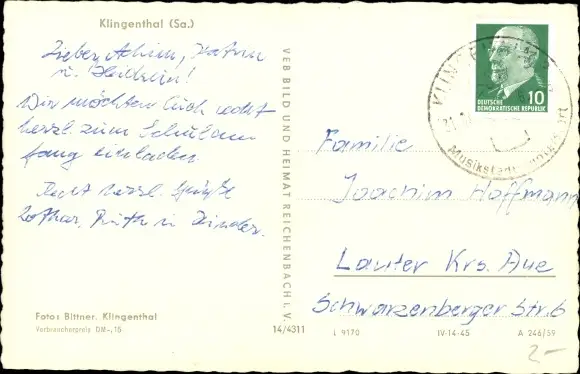 Klingenthal (Sa.)
Lieber Achim, Katrin
u. Heilwin!
Wir möchten Euch recht
herzl. zum Schulan
fang einladen
Recht herzl. Grüße
Lothar, Ruth u. Kinder.
Foto: Bittner, Klingenthal
Verbraucherpreis DM -,15
14/4311
VEB BILD UND HEIMAT REICHENBACH i. V.
DEUTSCHE
DEMOKRATISCHE REPUBLIK
10
KLINGENTHAL
21.
Musikstadt
Familie
Joachim Hoffmann
Lauter Krs. Aue
Schwarzenberger Str. 6
L 9170
IV-14-45
A 246/59
2-